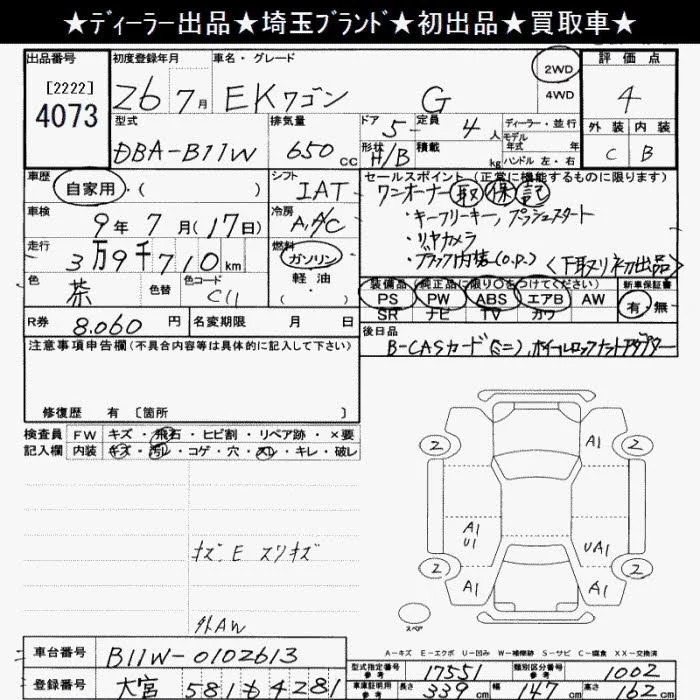 ★ディーラー出品★埼玉ブランド★初出品★買取車★
出品番号
[2222]
4073
初度登録年月
26年 7月
車名・グレード
EKワゴン G
2WD
4WD
評価点
4
外装 内装
C B
型式
DBA-B11W
排気量
650 CC
ドア 5
形状 H/B
定員 4人
積載 kg
ディーラー・並行
モデル
年式 年
ハンドル 左・右
車歴
自家用・( )
シフト
IAT
車検
9年7月(17日)
冷房
A,A/C
走行
3万9千710km
燃料
ガソリン
軽油
・( )
色
茶
色替
色コード
C11
セールスポイント(正常に機能するものに限ります)
ワンオーナー 取 保 記
・キーフリーキー,プッシュスタート
・リヤカメラ
・ブラック内装(O.P.) <下取り初出品>
装備品(純正品に限り○をつけてください)
PS PW ABS エアB AW
SR ナビ TV カワ
新車保証書
有 無
R券 8.060 円
名変期限 月 日
後日品
B-CASカード(ミニ),ホイールロックナットアダプター
注意事項申告欄(不具合内容等は具体的に記入して下さい)
修復歴 有 〔箇所 〕
検査員 FW キズ・飛石・ヒビ割・リペア跡・×要
記入欄 内装 キズ・汚レ・コゲ・穴・スレ・キレ・破レ
キズ.E スリキズ
外AW
2
A1
2
A1
U1
UA1
2
A1
A1
2
スペア
A-キズ E-エクボ U-凹み W-補修跡 S-サビ C-腐食 XX-交換済
車台番号
B11W-0102613
登録番号
大宮 581 も 4281
型式指定番号
参考
17551
類別区分番号
参考
1002
車庫証明用
参考
長さ 339cm 幅 147cm 高さ 162cm